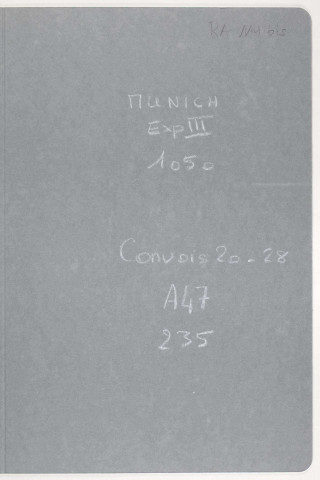 MUNICH
Exp III
1050
Convois 20-28
A47
235